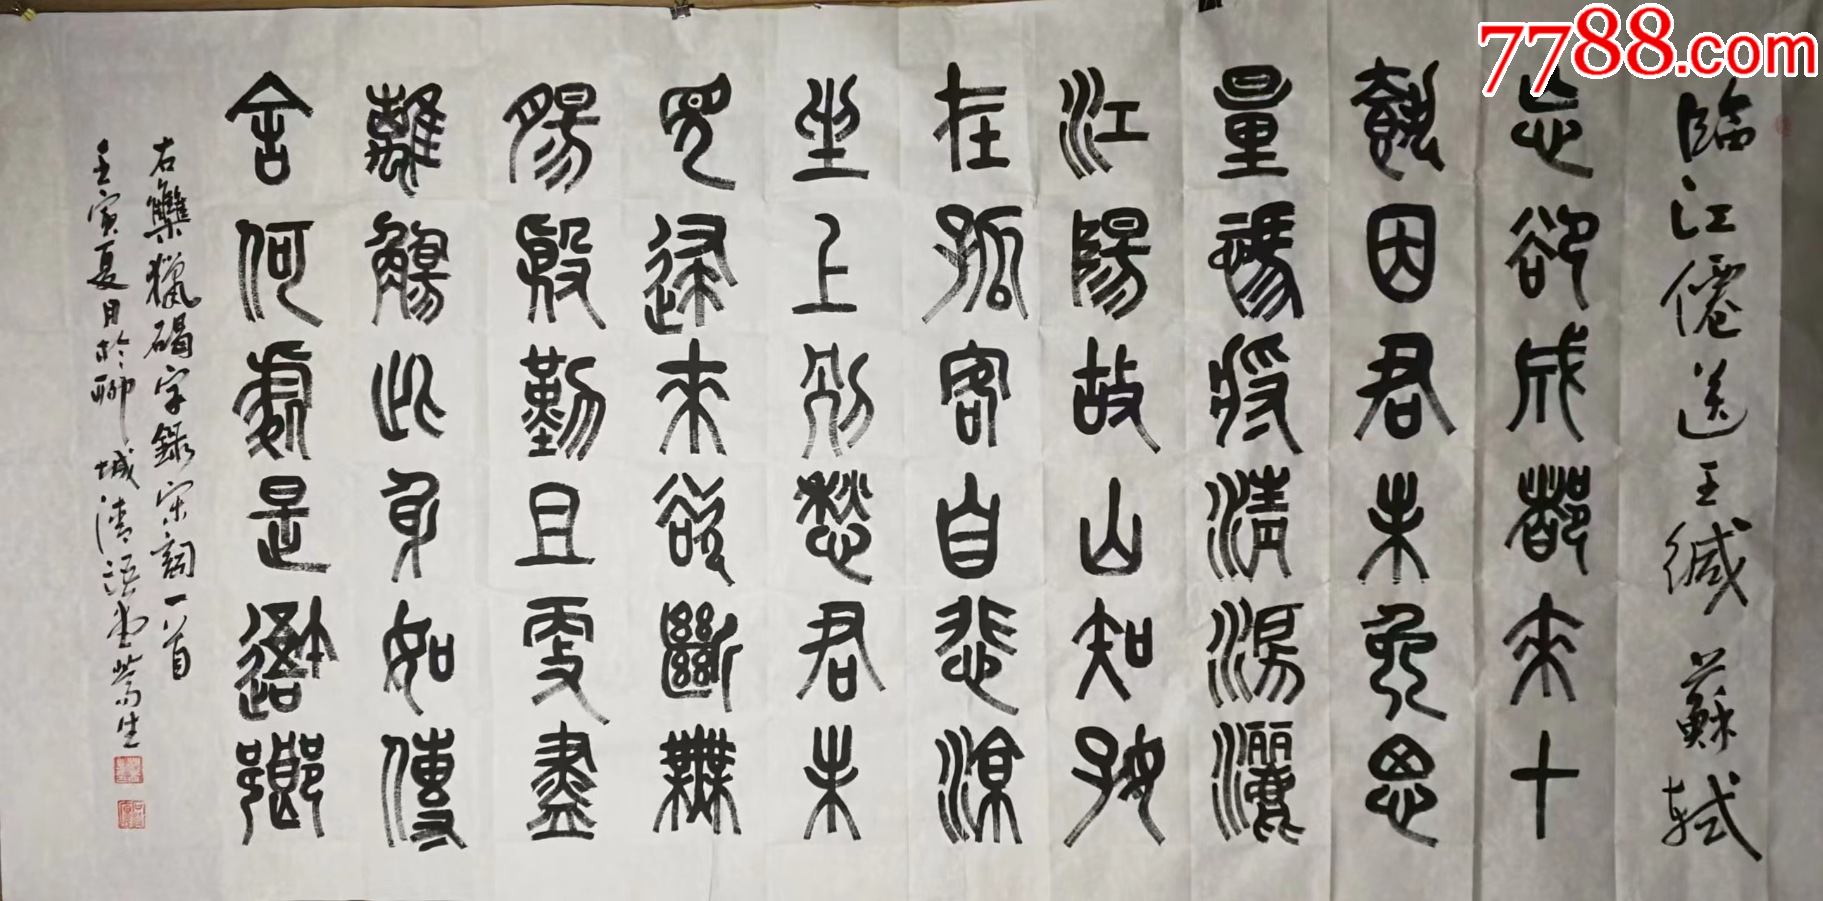 7788.com
臨江僊送王緘 蘇軾
忘卻成都來十
載因君未免思
量馮將清淚灑
江陽故山知好
在孤客自悲涼
坐上別愁君未
見歸來欲斷無
腸殷勤且更盡
離觴此身如傳
舍何處是吾鄉
右雧獵碣字錄宋詞一首
壬寅夏日於聊城清語堂嵩生